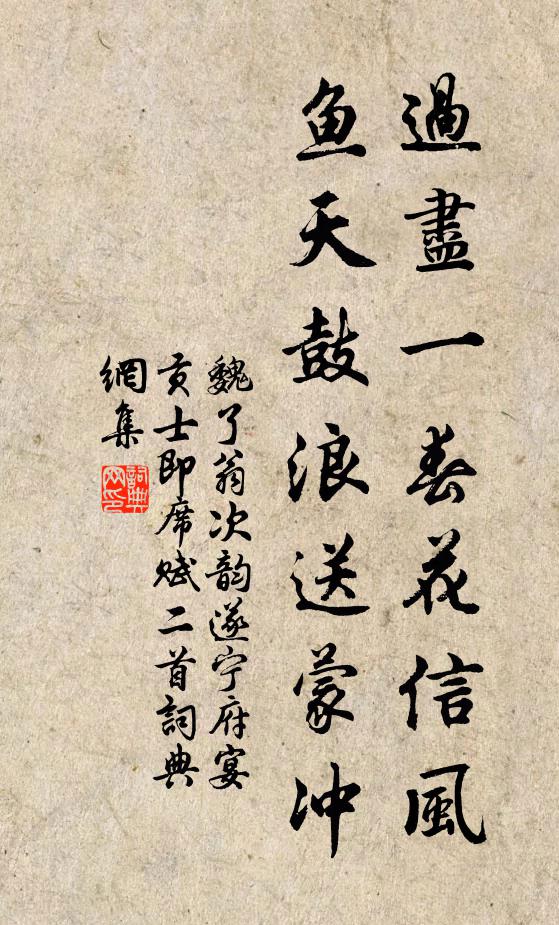 過盡一春花信風
鱼天鼓浪送蒙冲
魏了翁次韵遂宁府宴
贡士即席赋二首詞典
網集
詞典
网印